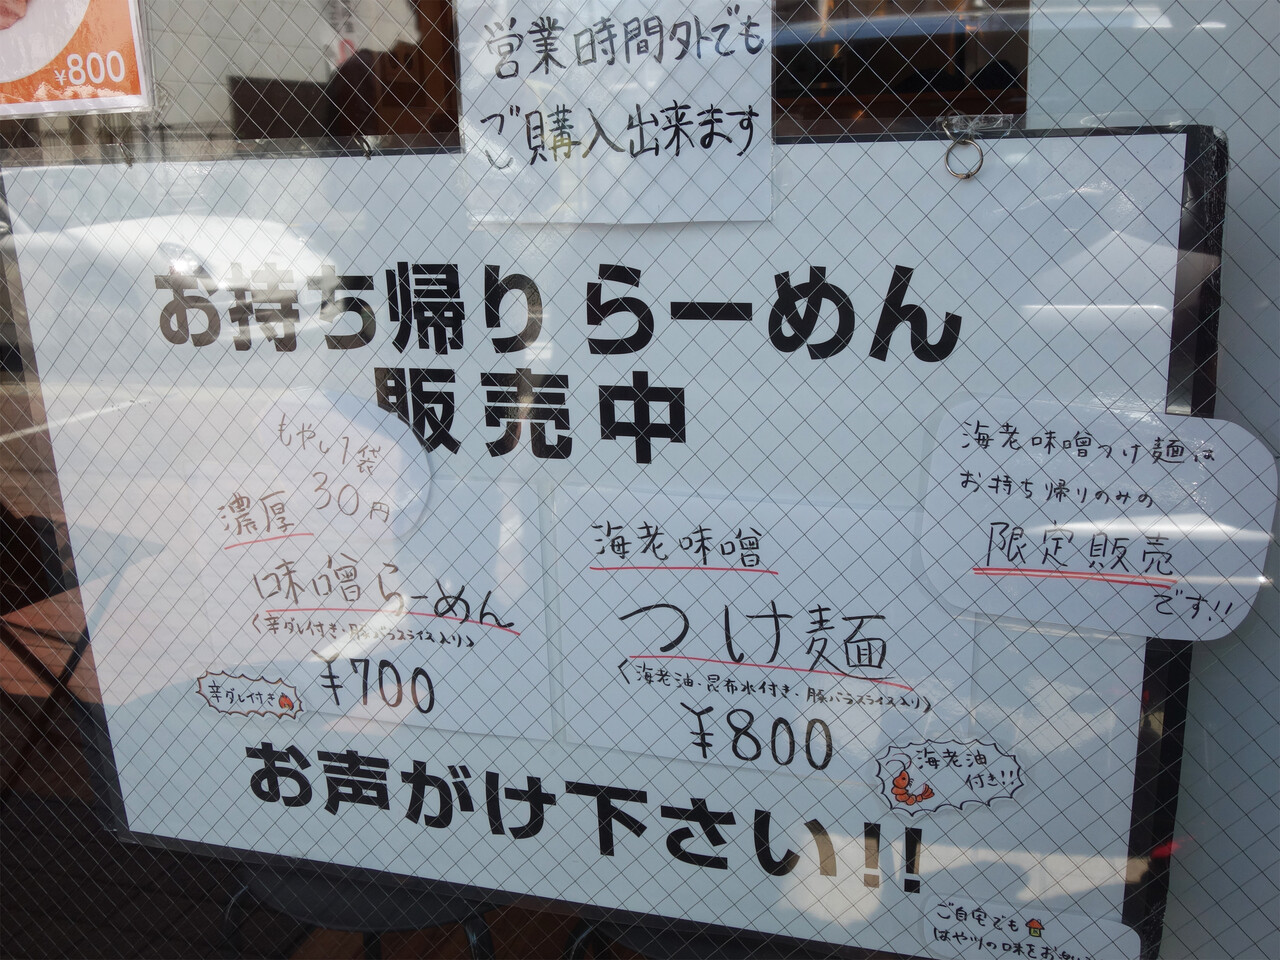 ¥800
営業時間外でも
ご購入出来ます
お持ち帰りらーめん
販売中
もやし1袋
30円
濃厚
味噌らーめん
〈辛ダレ付き・豚バラスライス入り〉
¥700
辛ダレ付き
海老味噌
つけ麺
〈海老油・昆布水付き・豚バラスライス入り〉
¥800
海老油
付き!!
海老味噌つけ麺は
お持ち帰りのみの
限定販売
です!!
お声がけ下さい!!
ご自宅でも
はやツの味をお